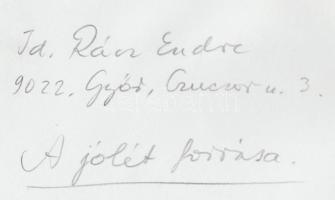 Id. Rácz Endre
9022. Győr, Czuczor u. 3.
A jólét forrása.